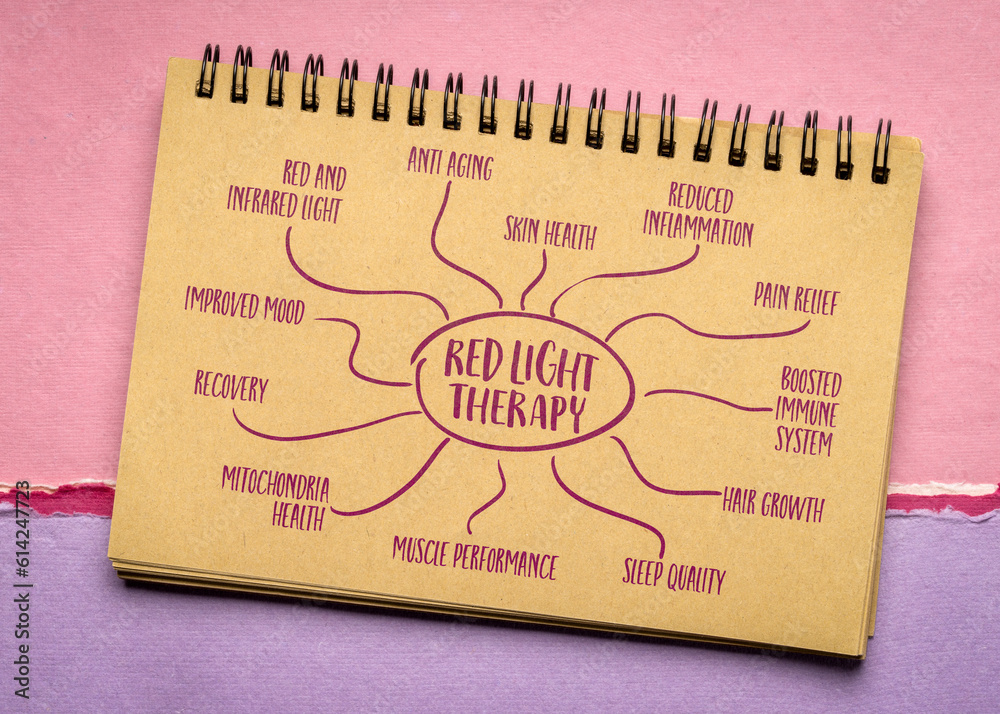 ANTI AGING
RED AND
INFRARED LIGHT
SKIN HEALTH
REDUCED
INFLAMMATION
IMPROVED MOOD
PAIN RELIEF
RED LIGHT
THERAPY
RECOVERY
BOOSTED
IMMUNE
SYSTEM
MITOCHONDRIA
HEALTH
HAIR GROWTH
MUSCLE PERFORMANCE
SLEEP QUALITY
Adobe Stock | #614247723
Adobe Stock